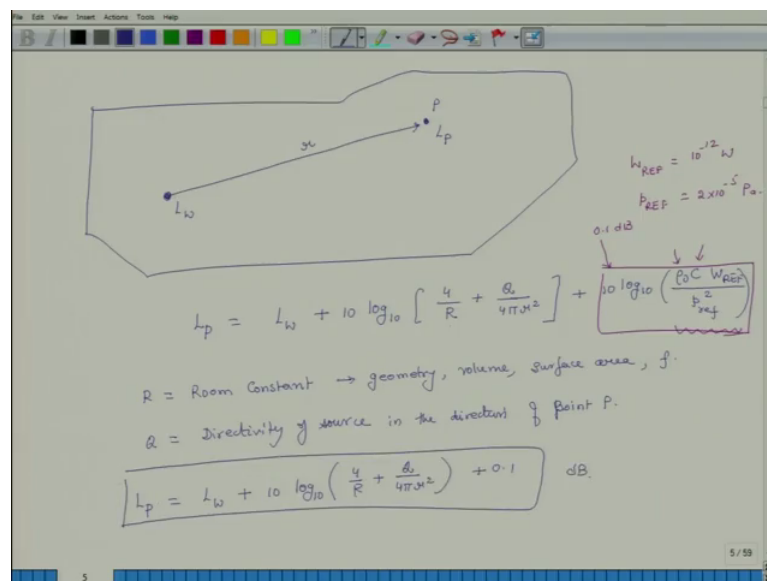 File Edit View Insert Actions Tools Help
B I
P
L_P
r
L_W
W_REF = 10^-12 W
P_REF = 2×10^-5 Pa.
0.1 dB
L_P = L_W + 10 log_10 [ 4/R + Q/4πr^2 ] + 10 log_10 ( ρ_0 C W_REF / P_ref^2 )
R = Room Constant → geometry, volume, surface area, f.
Q = Directivity of source in the direction of point P.
L_P = L_W + 10 log_10 ( 4/R + Q/4πr^2 ) + 0.1 dB.
5 / 59
5